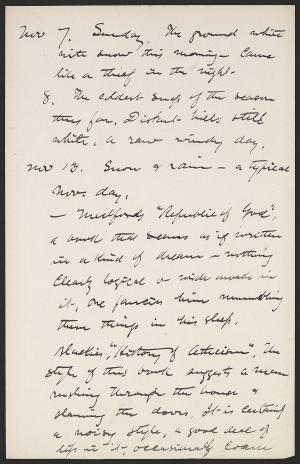 Nov 7. Sunday, The ground white
with snow this morning - Came
like a thief in the night.
8. The coldest snap of the season
thus far. Distant hills still
white, a raw windy day.
Nov 13. Snow & rain - a typical
Nov. day.
- Mulford's "Republic of God",
a book that seems as if written
in a kind of dream - nothing
clearly logical or wide awake in
it, one fancies him mumbling
these things in his sleep.
Blackie's, "History of Atheism", The
style of this book suggests a man
rushing through the house &
slamming the doors. It is certainly
a noisy style, a good deal of
life in it, occasionally